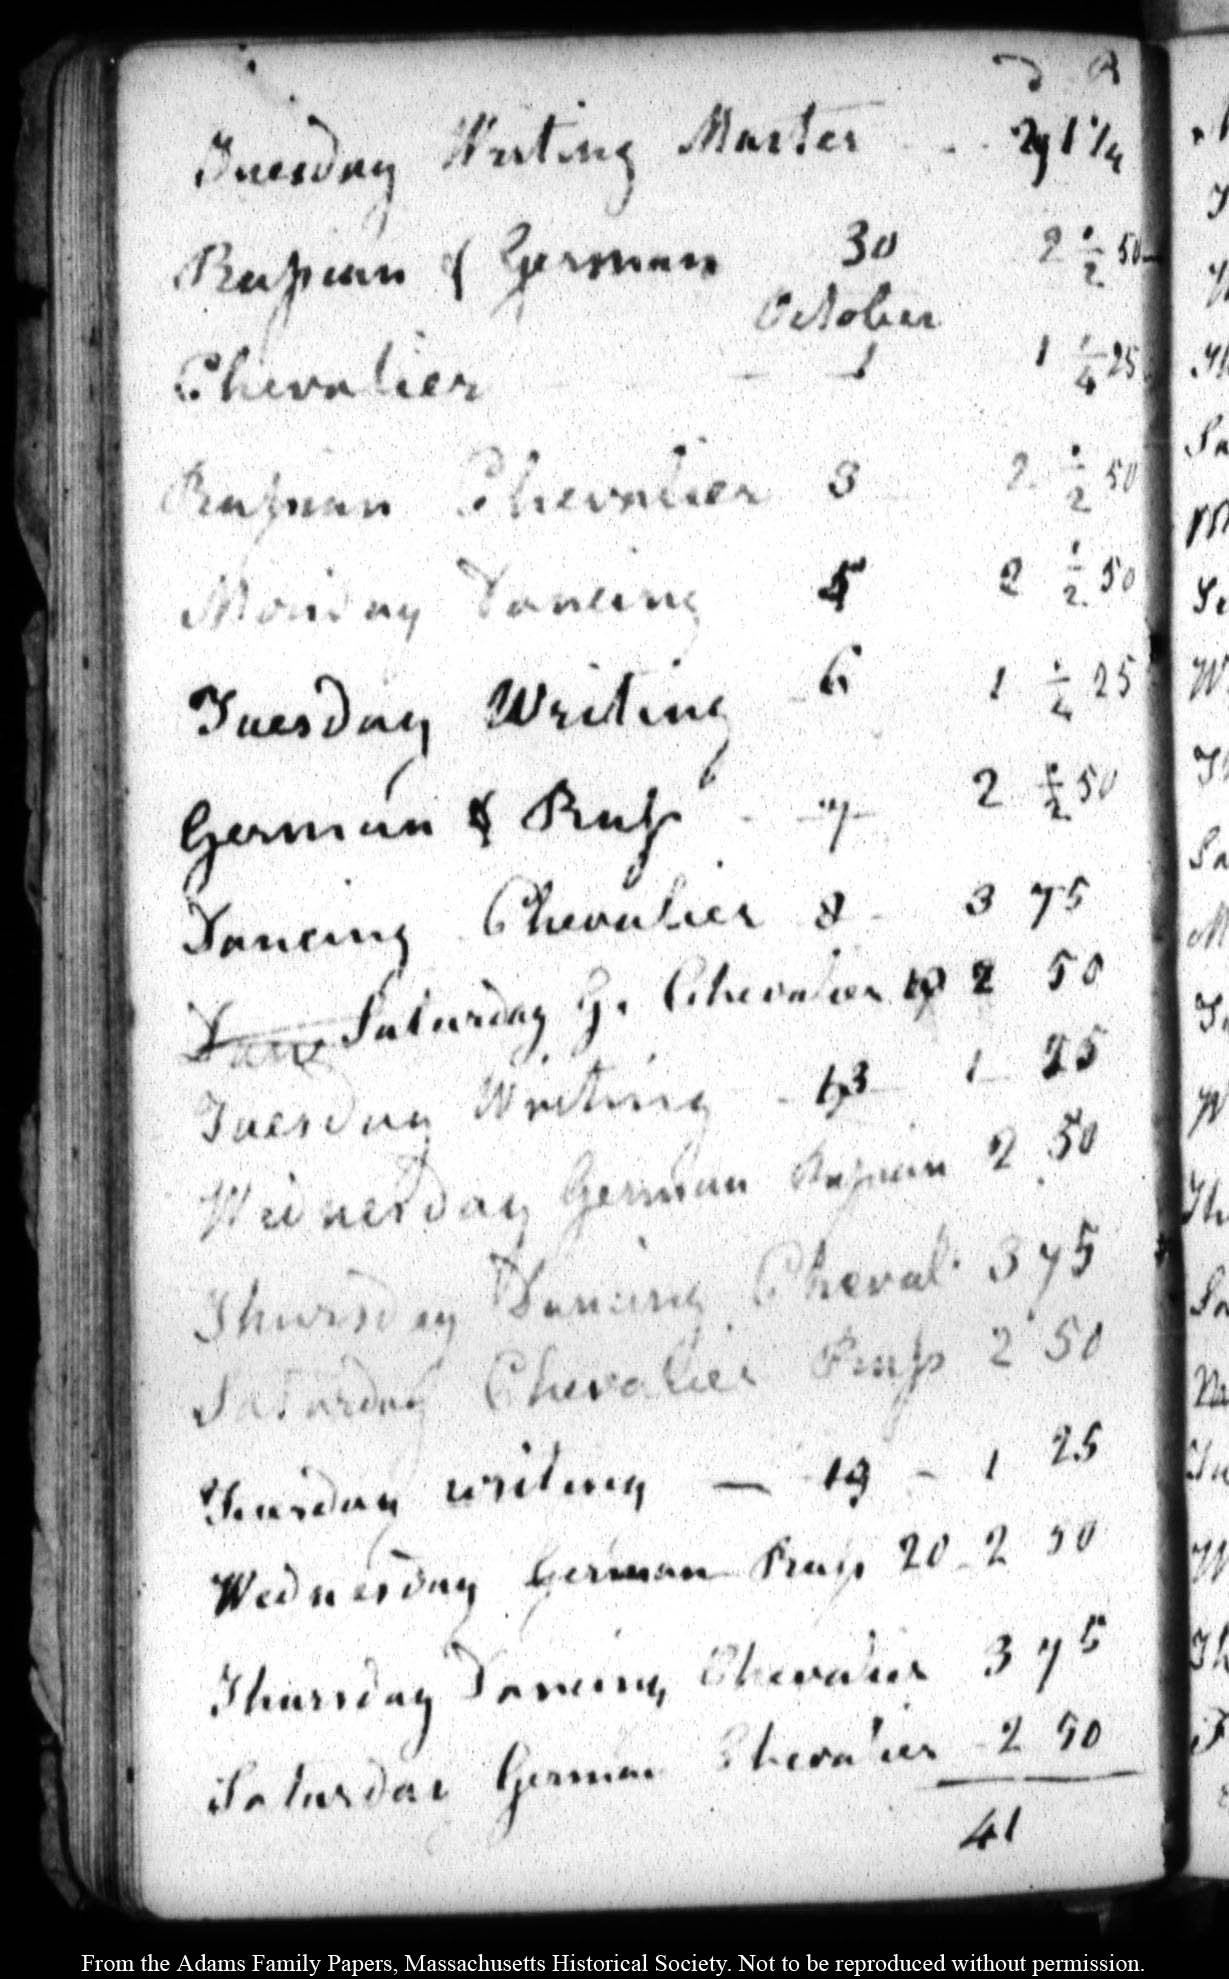 D R
Tuesday Writing Master - - - 29 1 1/4
Russian & German 30 2 1/2 50
October
Chevalier - 1 1 1/4 25
Russian Chevalier 3 2 1/2 50
Monday Dancing 5 2 1/2 50
Tuesday Writing - 6 1 1/4 25
German & Russ - 7 2 1/2 50
Dancing Chevalier 8 - 3 75
Danc Saturday G. Chevalier 10 2 50
Tuesday Writing - 13 1 25
Wednesday German Russian 2 50
Thursday Dancing Cheval. 3 75
Saturday Chevalier Russ 2 50
Tuesday writing — 19 - 1 25
Wednesday German Russ 20 - 2 50
Thursday Dancing Chevalier 3 75
Saturday German Chevalier - 2 50
41
From the Adams Family Papers, Massachusetts Historical Society. Not to be reproduced without permission.